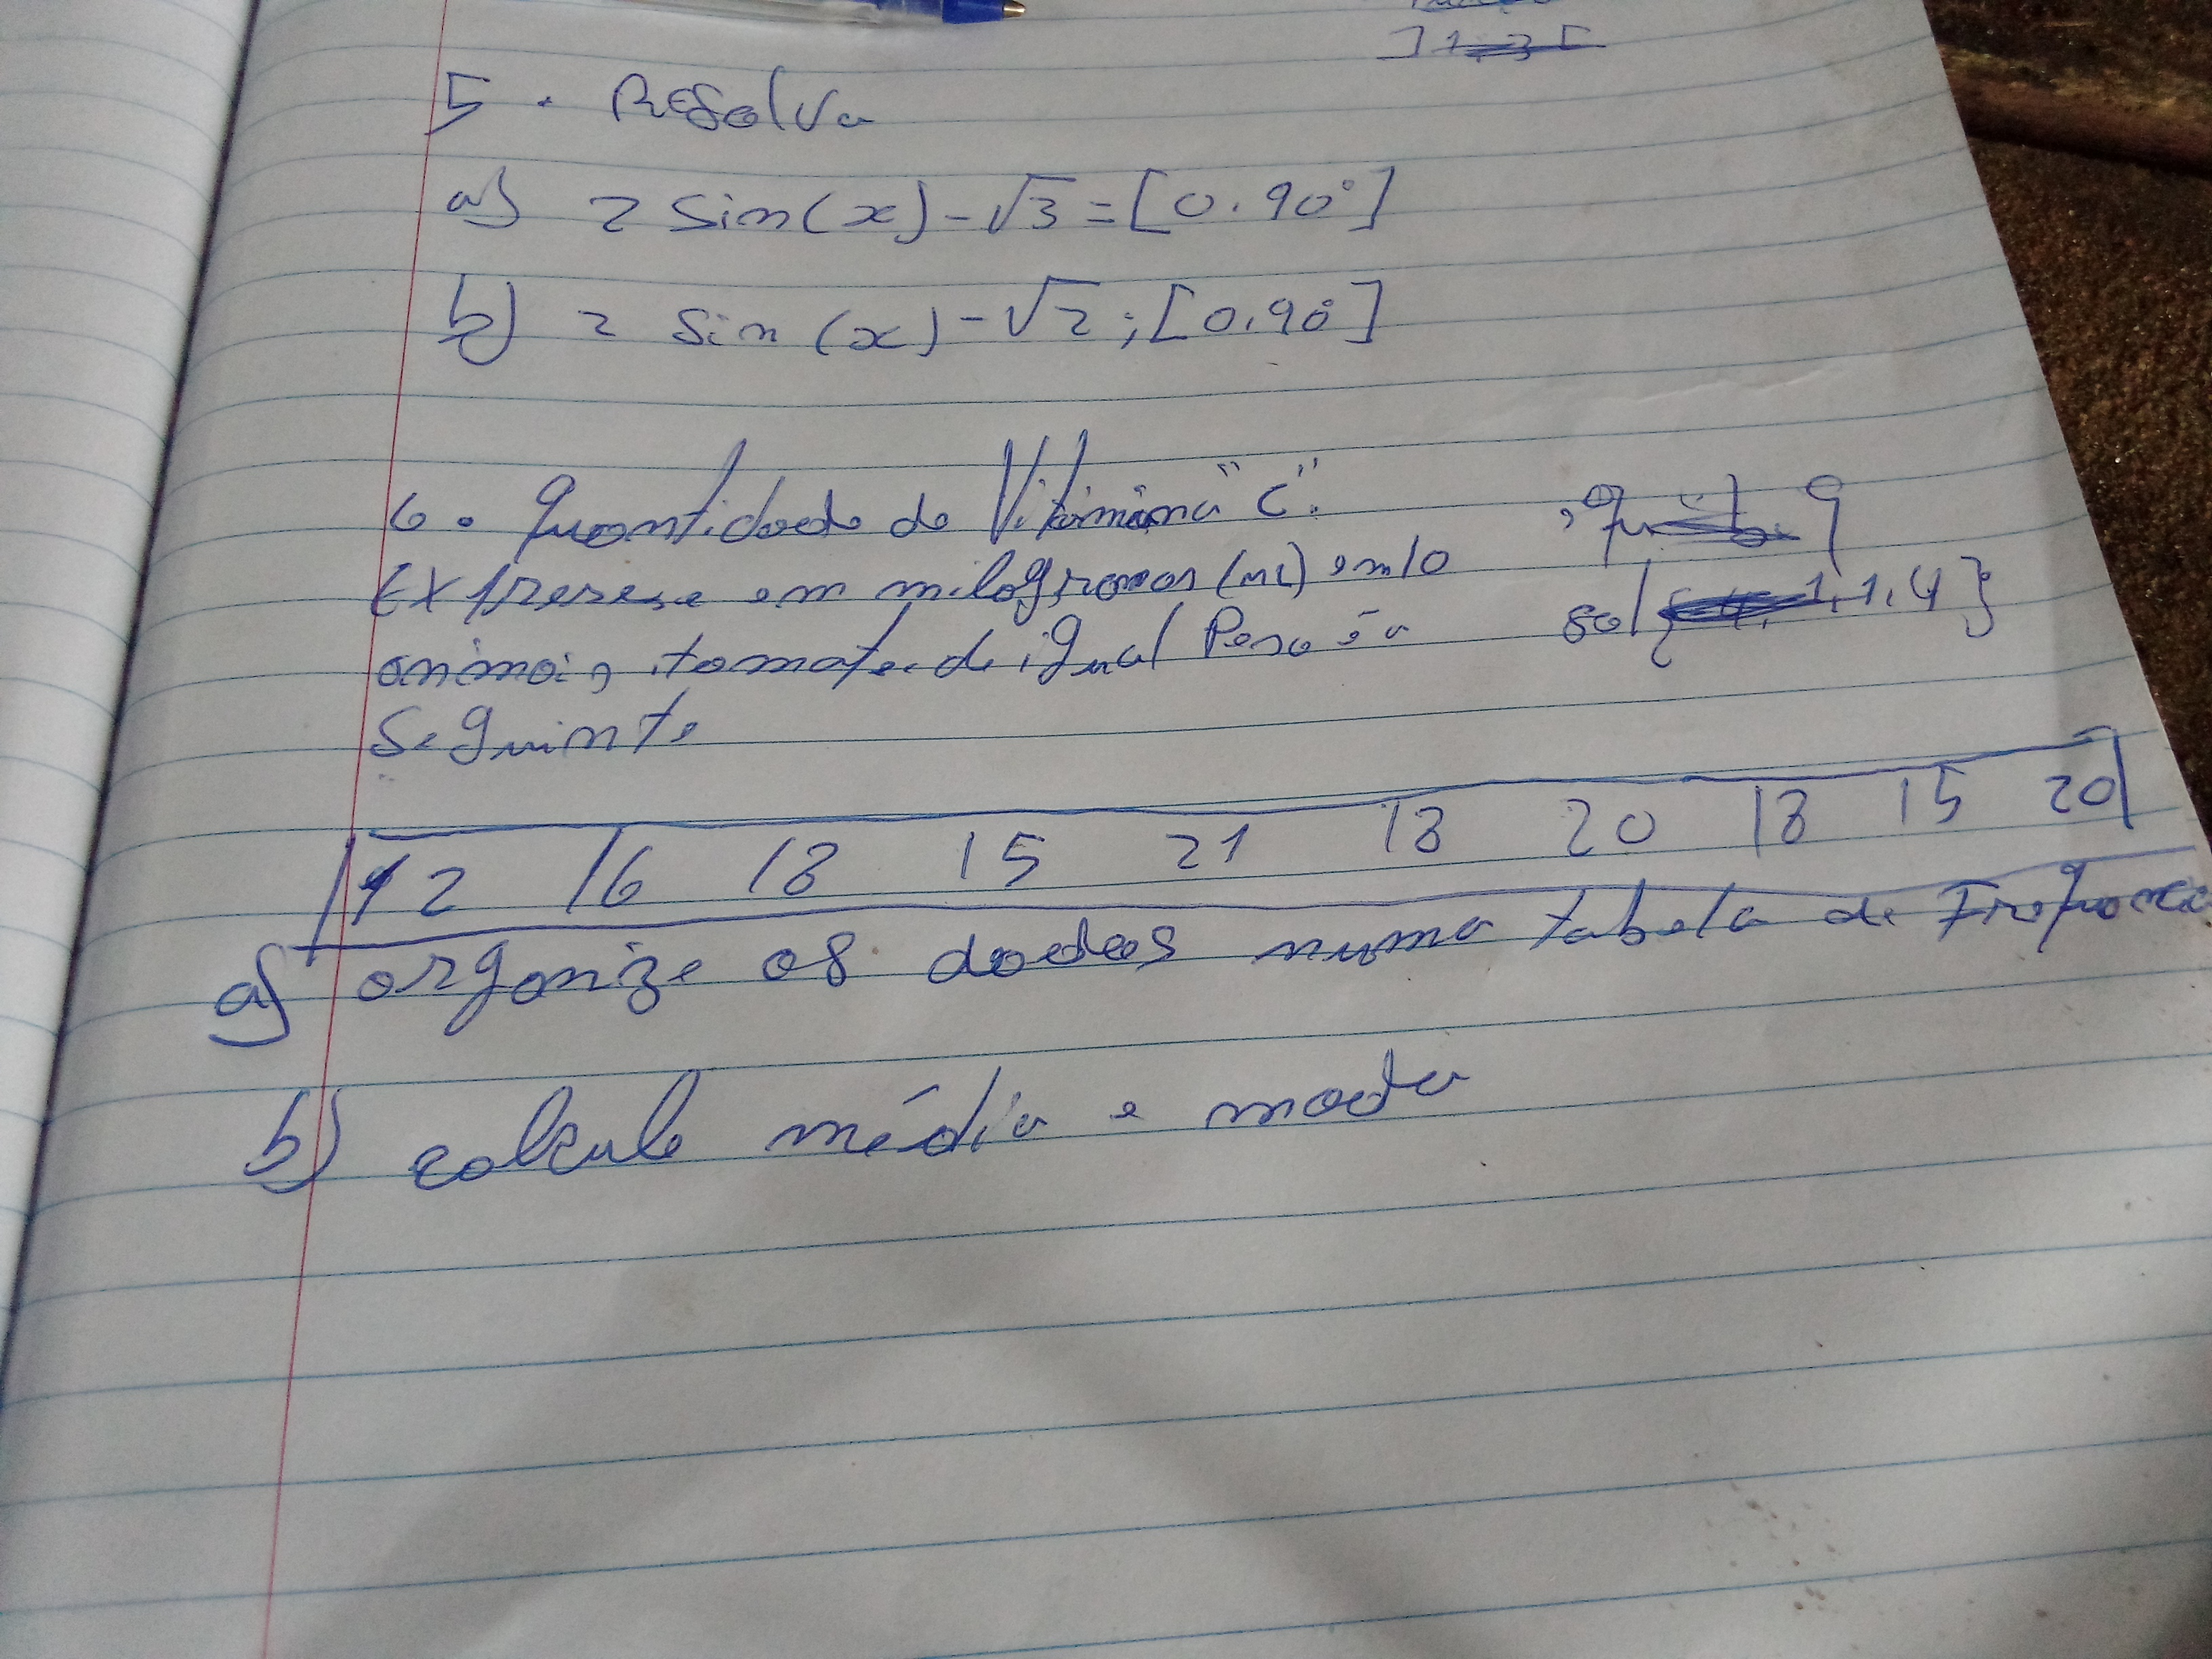 5. Resolva
a) 2 sin(x) - √3 = [0.90°]
b) 2 sin(x) - √2 ; [0.90°]
6. Quantidade de Vitamina "C".
Expresse em milogramas (mL) em 10
animais, tomate de igual Peso é a
Seguinte
sol{ 1,1,4}
12 16 18 15 21 18 20 18 15 20
a) organize os dados numa tabela de Frequencia
b) calcule média e moda